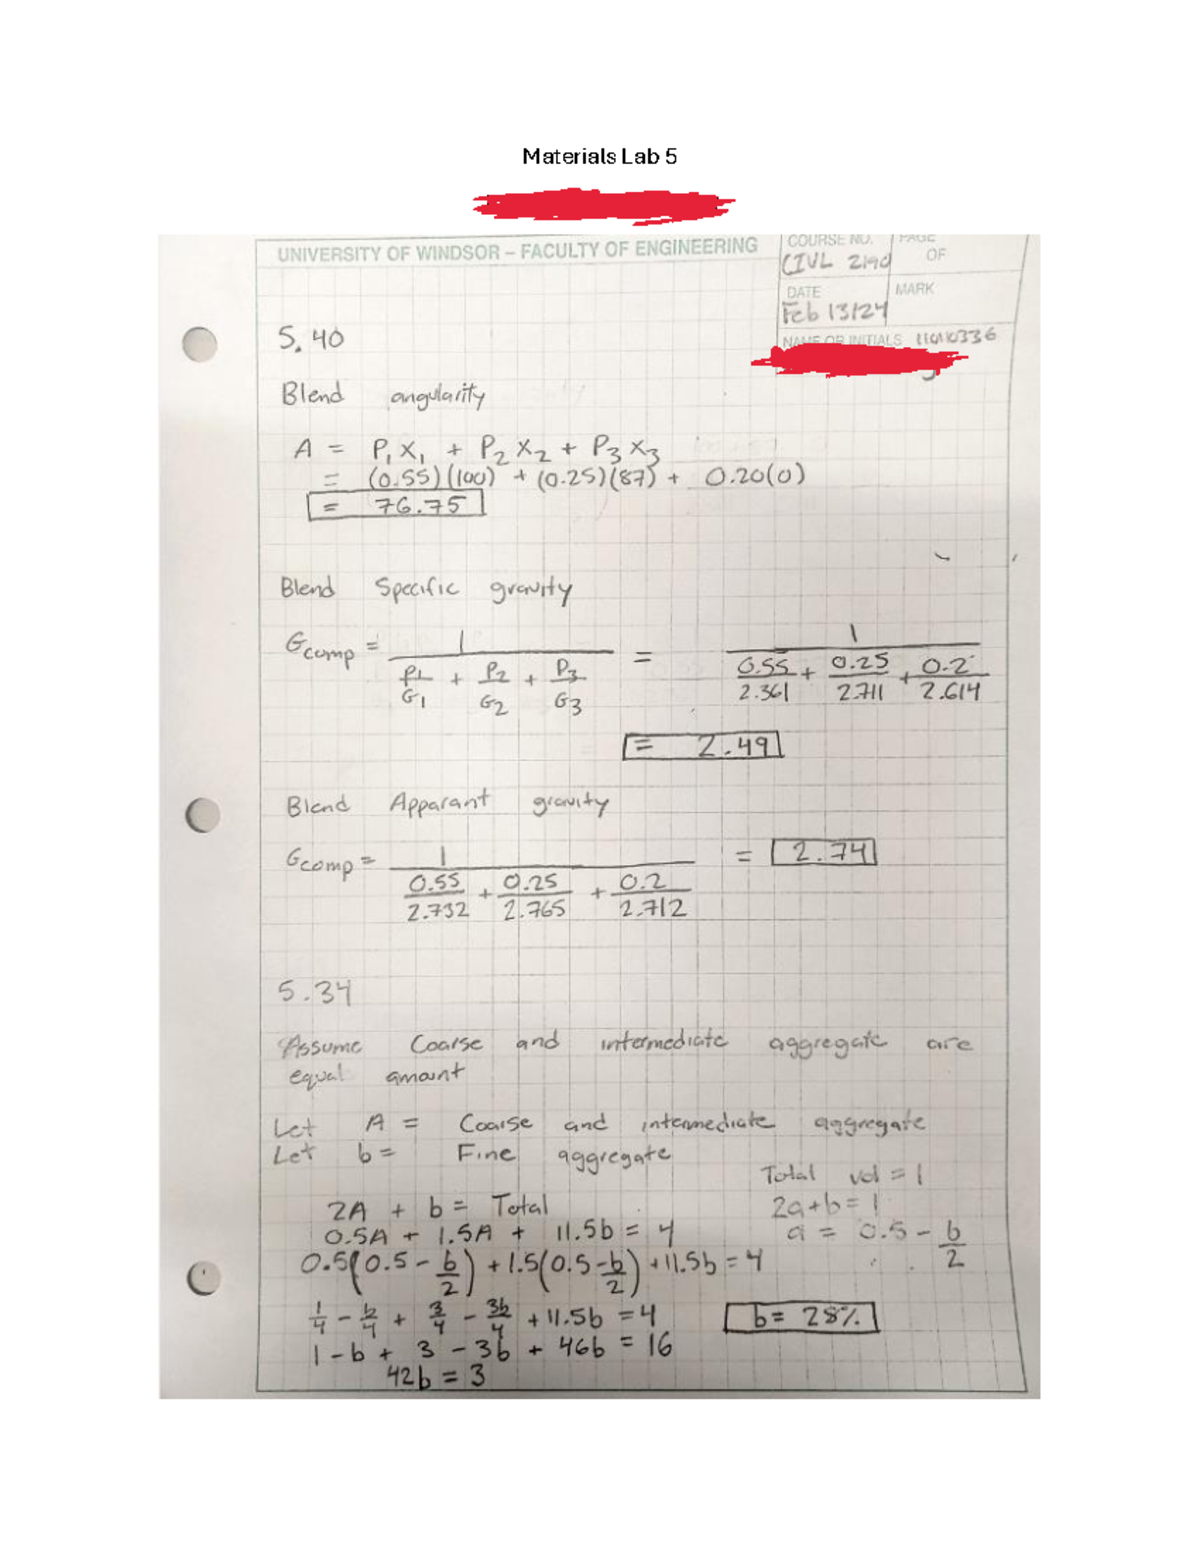 Materials Lab 5
UNIVERSITY OF WINDSOR – FACULTY OF ENGINEERING
COURSE NO.
CIVL 2190
PAGE
OF
DATE
Feb 13/24
MARK
NAME OR INITIALS
5.40
Blend angularity
A = P₁X₁ + P₂X₂ + P₃X₃
= (0.55)(100) + (0.25)(87) + 0.20(0)
= 76.75
Blend Specific gravity
Gcomp = 1 / (P1/G1 + P2/G2 + P3/G3) = 1 / (0.55/2.361 + 0.25/2.711 + 0.2/2.614)
= 2.49
Blend Apparant gravity
Gcomp = 1 / (0.55/2.732 + 0.25/2.765 + 0.2/2.712) = 2.74
5.34
Assume Coarse and intermediate aggregate are
equal amount
Let A = Coarse and intermediate aggregate
Let b = Fine aggregate
Total vol = 1
2A + b = Total
2a+b=1
0.5A + 1.5A + 11.5b = 4
a = 0.5 - b/2
0.5(0.5 - b/2) + 1.5(0.5 - b/2) + 11.5b = 4
1/4 - b/4 + 3/4 - 3b/4 + 11.5b = 4
b = 28%
1 - b + 3 - 3b + 46b = 16
42b = 3